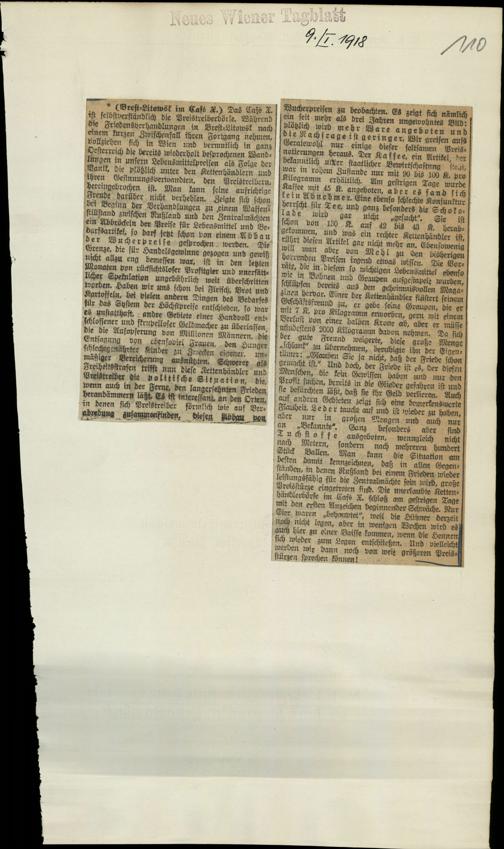 Neues Wiener Tagblatt
9./I. 1918
110
* (Brest-Litowsk im Café X.) Das Café X.
ist selbstverständlich die Preistreiberbörse. Während
die Friedensverhandlungen in Brest-Litowsk nach
einem kurzen Zwischenfall ihren Fortgang nehmen,
vollziehen sich in Wien und vermutlich in ganz
Oesterreich die bereits wiederholt besprochenen Wand-
lungen in unsern Lebensmittelpreisen als Folge der
Panik, die plötzlich unter den Kettenhändlern und
ihren Gesinnungsverwandten, den Preistreibern,
hereingebrochen ist. Man kann seine aufrichtige
Freude darüber nicht verhehlen. Zeigte sich schon
bei Beginn der Verhandlungen zu einem Waffen-
stillstand zwischen Rußland und den Zentralmächten
ein Abbröckeln der Preise für Lebensmittel und Be-
darfsartikel, so darf jetzt schon von einem Abbau
der Wucherpreise gesprochen werden. Die
Grenze, die für Handelsgewinne gezogen und gewiß
nicht allzu eng bemessen war, ist in den letzten
Monaten von rücksichtslosen Profitgier und unersätt-
licher Spekulation ungebührlich weit überschritten
worden. Haben wir uns schon bei Fleisch, Brot und
Kartoffeln, bei vielen andern Dingen des Bedarfes
für das System der Höchstpreise entschieden, so war
es unstatthaft, andre Gebiete einer Handvoll ent-
schlossener und skrupelloser Geldmacher zu überlassen,
die die Aufopferung von Millionen Männern, die
Entsagung von ebensoviel Frauen, den Hunger
schlechtgenährter Kinder zu Zwecken eigener, un-
mäßiger Bereicherung ausnützten. Schwerer als
Freiheitsstrafen trifft nun diese Kettenhändler und
Preistreiber die politische Situation, die,
wenn auch in der Ferne, den langersehnten Frieden
herandämmern läßt. Es ist interessant, an den Orten,
in denen sich Preistreiber förmlich wie auf Ver-
abredung zusammenfinden, diesen Abbau von
Wucherpreisen zu beobachten. Es zeigt sich nämlich
ein seit mehr als drei Jahren ungewohntes Bild:
plötzlich wird mehr Ware angeboten und
die Nachfrage ist geringer. Wir greifen aufs
Geratewohl nur einige dieser seltsamen Preis-
notierungen heraus. Der Kaffee, ein Artikel, der
bekanntlich unter staatlicher Bewirtschaftung steht,
war in rohem Zustande nur mit 90 bis 100 K. pro
Kilogramm erhältlich. Am gestrigen Tage wurde
Kaffee mit 45 K. angeboten, aber es fand sich
kein Abnehmer. Eine ebenso schlechte Konjunktur
herrscht für Tee, und ganz besonders die Schoko-
lade wird gar nicht „gesucht“. Sie ist
schon von 100 K. auf 42 bis 43 K. herab-
gekommen, und was ein rechter Kettenhändler ist,
rührt diesen Artikel gar nicht mehr an. Ebensowenig
will man aber von Mehl zu den bisherigen
horrenden Preisen irgend etwas wissen. Die Vor-
räte, die in diesem so wichtigen Lebensmittel ebenso
wie in Bohnen und Graupen aufgestapelt wurden,
schlüpfen bereits aus den geheimnisvollen Maga-
zinen hervor. Einer der Kettenhändler flüstert seinem
Geschäftsfreund zu, er gebe seine Graupen, die er
mit 7 K. pro Kilogramm erworben, gern mit einem
Verlust von einer halben Krone ab, aber er müsse
mindestens 2000 Kilogramm davon nehmen. Da sich
der gute Freund weigerte, diese große Menge
„schlank“ zu übernehmen, beruhigte ihn der Eigen-
tümer: „Meinen Sie ja nicht, daß der Friede schon
gemacht ist.“ Und doch, der Friede ist es, der diesen
Menschen, die kein Gewissen haben und nur den
Profit suchen, bereits in die Glieder gefahren ist und
sie befürchten läßt, daß sie ihr Geld verlieren. Auch
auf andern Gebieten zeigt sich eine bemerkenswerte
Flauheit. Leder taucht auf und ist wieder zu haben,
aber nur in großen Mengen und auch nur
an „Bekannte“. Ganz besonders aber sind
Tuchstoffe ausgeboten, wenngleich nicht
nach Metern, sondern nach mehreren hundert
Stück Ballen. Man kann die Situation am
besten damit kennzeichnen, daß in allen Gegen-
ständen, in denen Rußland bei einem Frieden wieder
leistungsfähig für die Zentralmächte sein wird, große
Preisstürze eingetroffen sind. Die unerlaubte Ketten-
händlerbörse im Café X. schloß am gestrigen Tage
mit den ersten Anzeichen beginnender Schwäche. Nur
Eier waren „behauptet“, weil die Hühner derzeit
noch nicht legen, aber in wenigen Wochen wird es
auch hier zu einer Baisse kommen, wenn die Hennen
sich wieder zum Legen entschließen. Und vielleicht
werden wir dann noch von weit größeren Preis-
stürzen sprechen können!